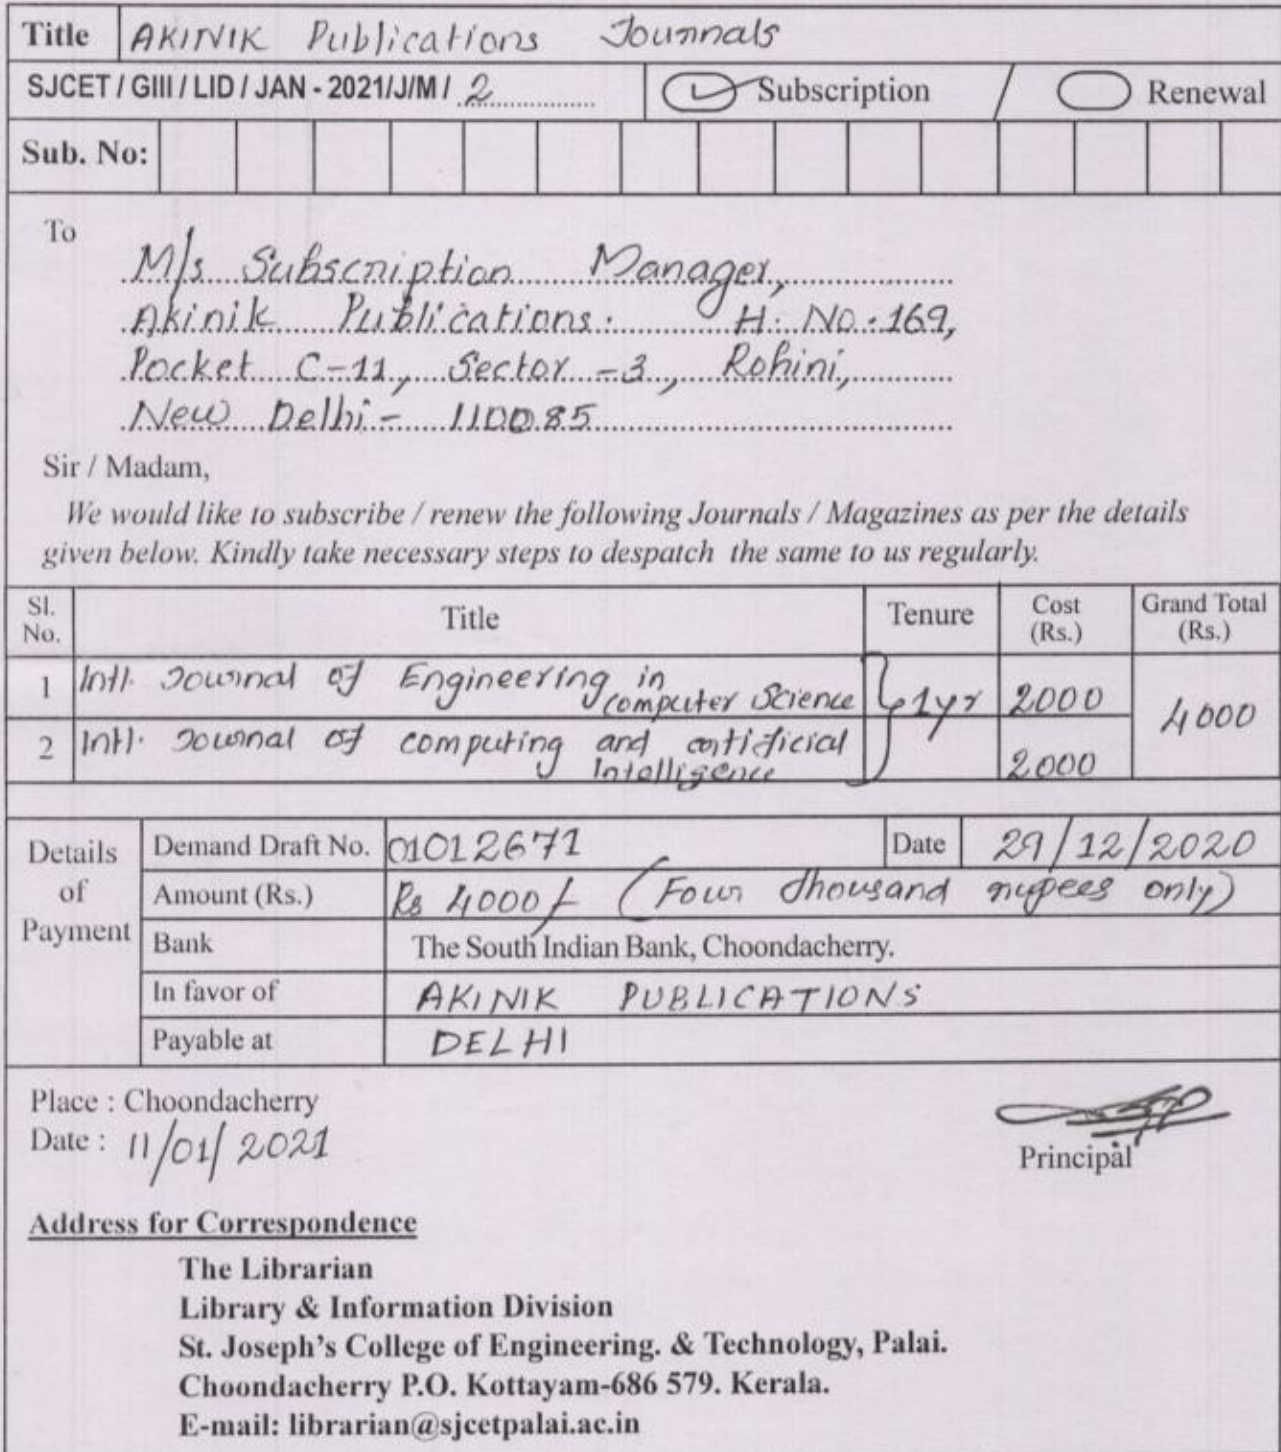 Title AKINIK Publications Journals
SJCET / GIII / LID / JAN - 2021/J/M/ 2 Subscription / Renewal
Sub. No:
To
M/s Subscription Manager,
Akinik Publications. H. No. 169,
Pocket C-11, Sector -3, Rohini,
New Delhi - 110085
Sir / Madam,
We would like to subscribe / renew the following Journals / Magazines as per the details
given below. Kindly take necessary steps to despatch the same to us regularly.
Sl. No. Title Tenure Cost (Rs.) Grand Total (Rs.)
1 Intl. Journal of Engineering in computer Science 1yr 2000 4000
2 Intl. Journal of computing and artificial Intelligence 2000
Details of Payment
Demand Draft No. 01012671 Date 29/12/2020
Amount (Rs.) Rs 4000/- (Four thousand rupees only)
Bank The South Indian Bank, Choondacherry.
In favor of AKINIK PUBLICATIONS
Payable at DELHI
Place : Choondacherry
Date : 11/01/2021
Principal
Address for Correspondence
The Librarian
Library & Information Division
St. Joseph's College of Engineering. & Technology, Palai.
Choondacherry P.O. Kottayam-686 579. Kerala.
E-mail: librarian@sjcetpalai.ac.in